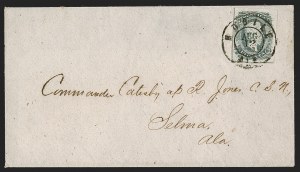 MOBILE
AUG
ALA
Commander Catesby ap R. Jones C.S.N.
Selma,
Ala.